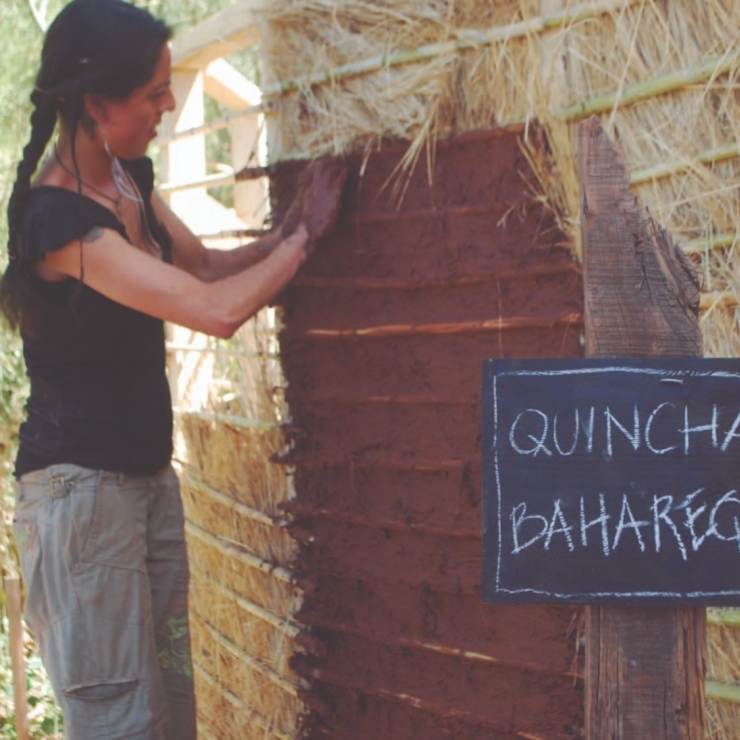 QUINCHA
BAHAREQ